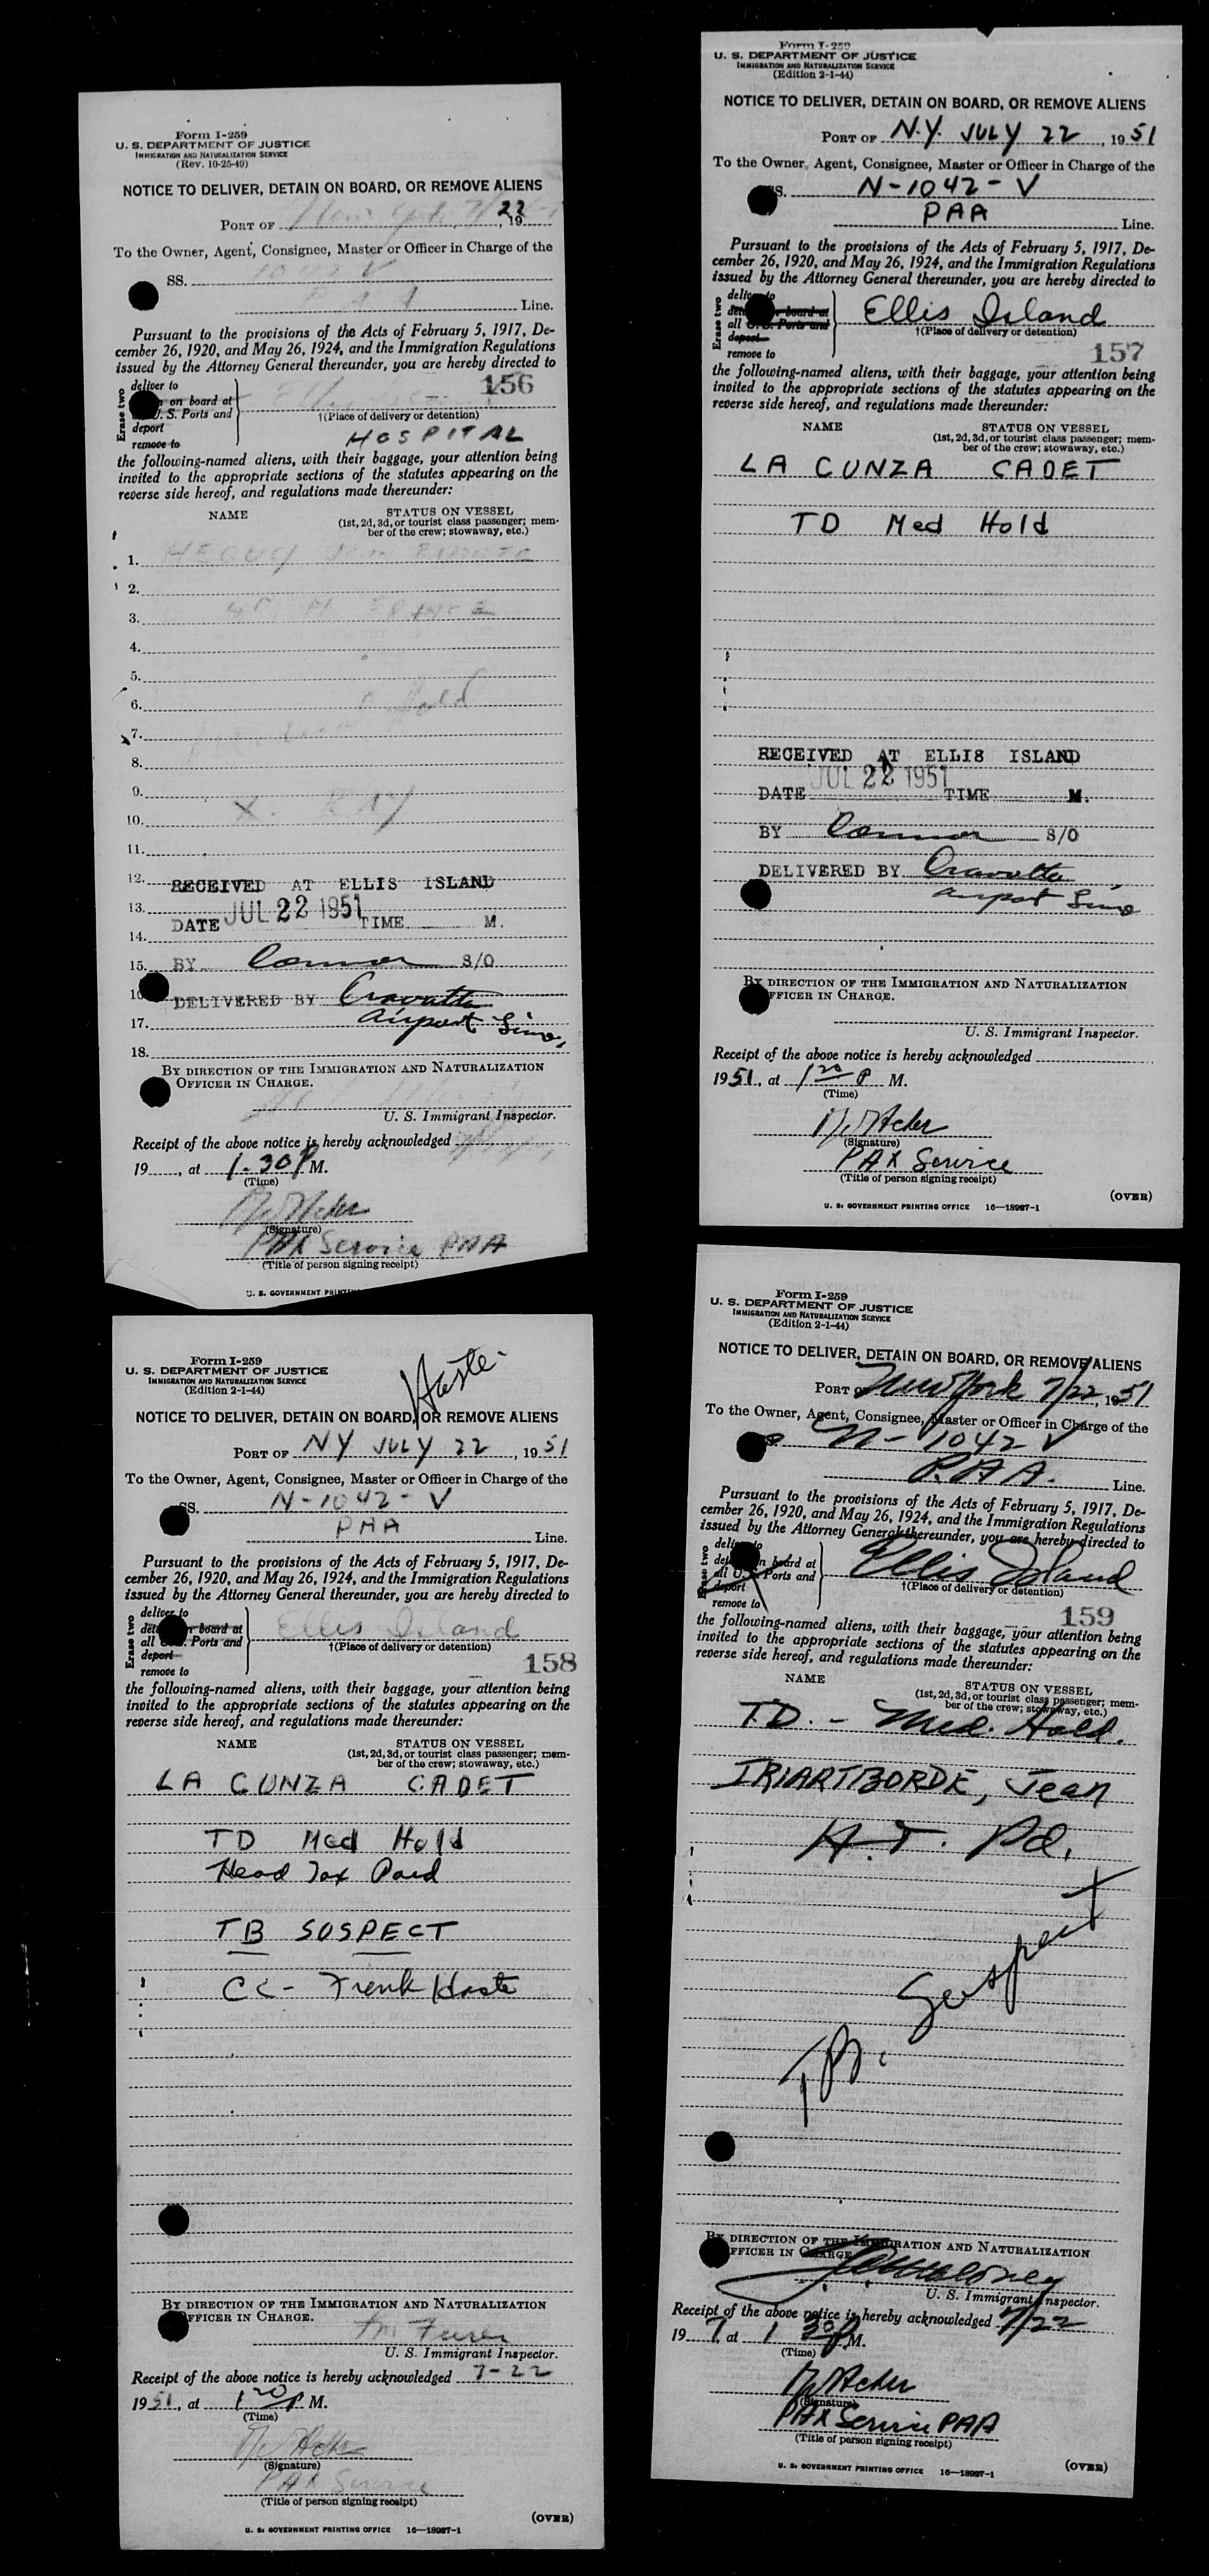 Form I-259
U. S. DEPARTMENT OF JUSTICE
IMMIGRATION AND NATURALIZATION SERVICE
(Rev. 10-25-49)
NOTICE TO DELIVER, DETAIN ON BOARD, OR REMOVE ALIENS
PORT OF New York 7/22, 19
To the Owner, Agent, Consignee, Master or Officer in Charge of the
SS. 1042 V
PAA Line.
Pursuant to the provisions of the Acts of February 5, 1917, De-
cember 26, 1920, and May 26, 1924, and the Immigration Regulations
issued by the Attorney General thereunder, you are hereby directed to
Erase two
deliver to
on board at
U. S. Ports and
deport
remove to
Ellis
156
†(Place of delivery or detention)
HOSPITAL
the following-named aliens, with their baggage, your attention being
invited to the appropriate sections of the statutes appearing on the
reverse side hereof, and regulations made thereunder:
NAME STATUS ON VESSEL
(1st, 2d, 3d, or tourist class passenger; mem-
ber of the crew; stowaway, etc.)
1. HEGUY
2.
3.
4.
5.
6. Hold
7.
8.
9.
10. X. RAY
11.
12. RECEIVED AT ELLIS ISLAND
13.
DATE JUL 22 1951 TIME M.
14.
15. BY Connor S/O
16. DELIVERED BY Cravatta
17. Airport Limo,
18.
BY DIRECTION OF THE IMMIGRATION AND NATURALIZATION
OFFICER IN CHARGE.
U. S. Immigrant Inspector.
Receipt of the above notice is hereby acknowledged
19, at 1.30 P M.
(Time)
(Signature)
PAX Service PAA
(Title of person signing receipt)
U. S. GOVERNMENT PRINTING
Form I-259
U. S. DEPARTMENT OF JUSTICE
IMMIGRATION AND NATURALIZATION SERVICE
(Edition 2-1-44)
NOTICE TO DELIVER, DETAIN ON BOARD, OR REMOVE ALIENS
PORT OF N.Y. JULY 22, 1951
To the Owner, Agent, Consignee, Master or Officer in Charge of the
SS. N-1042-V
PAA Line.
Pursuant to the provisions of the Acts of February 5, 1917, De-
cember 26, 1920, and May 26, 1924, and the Immigration Regulations
issued by the Attorney General thereunder, you are hereby directed to
Erase two
deliver to
board at
all U. S. Ports and
deport
remove to
Ellis Island
†(Place of delivery or detention)
157
the following-named aliens, with their baggage, your attention being
invited to the appropriate sections of the statutes appearing on the
reverse side hereof, and regulations made thereunder:
NAME STATUS ON VESSEL
(1st, 2d, 3d, or tourist class passenger; mem-
ber of the crew; stowaway, etc.)
LA CUNZA CADET
TD Med Hold
RECEIVED AT ELLIS ISLAND
JUL 22 1951
DATE TIME M.
BY Connor S/O
DELIVERED BY Cravatta
airport Limo
BY DIRECTION OF THE IMMIGRATION AND NATURALIZATION
OFFICER IN CHARGE.
U. S. Immigrant Inspector.
Receipt of the above notice is hereby acknowledged
1951, at 1 20 P M.
(Time)
(Signature)
PAX Service
(Title of person signing receipt)
(OVER)
U. S. GOVERNMENT PRINTING OFFICE 16—18927-1
Form I-259
U. S. DEPARTMENT OF JUSTICE
IMMIGRATION AND NATURALIZATION SERVICE
(Edition 2-1-44)
Haste-
NOTICE TO DELIVER, DETAIN ON BOARD, OR REMOVE ALIENS
PORT OF NY JULY 22, 1951
To the Owner, Agent, Consignee, Master or Officer in Charge of the
SS. N-1042-V
PAA Line.
Pursuant to the provisions of the Acts of February 5, 1917, De-
cember 26, 1920, and May 26, 1924, and the Immigration Regulations
issued by the Attorney General thereunder, you are hereby directed to
Erase two
deliver to
board at
all U. S. Ports and
deport
remove to
Ellis Island
†(Place of delivery or detention)
158
the following-named aliens, with their baggage, your attention being
invited to the appropriate sections of the statutes appearing on the
reverse side hereof, and regulations made thereunder:
NAME STATUS ON VESSEL
(1st, 2d, 3d, or tourist class passenger; mem-
ber of the crew; stowaway, etc.)
LA CUNZA CADET
TD Med Hold
Head Tax Paid
TB SUSPECT
CC- Frank Haste
BY DIRECTION OF THE IMMIGRATION AND NATURALIZATION
OFFICER IN CHARGE.
U. S. Immigrant Inspector.
Receipt of the above notice is hereby acknowledged 7-22
1951, at 1 20 P M.
(Time)
(Signature)
PAX Service
(Title of person signing receipt)
(OVER)
U. S. GOVERNMENT PRINTING OFFICE 16—18927-1
Form I-259
U. S. DEPARTMENT OF JUSTICE
IMMIGRATION AND NATURALIZATION SERVICE
(Edition 2-1-44)
NOTICE TO DELIVER, DETAIN ON BOARD, OR REMOVE ALIENS
PORT OF New York 7/22, 1951
To the Owner, Agent, Consignee, Master or Officer in Charge of the
N-1042 V
P.A.A. Line.
Pursuant to the provisions of the Acts of February 5, 1917, De-
cember 26, 1920, and May 26, 1924, and the Immigration Regulations
issued by the Attorney General thereunder, you are hereby directed to
Erase two
deliver to
on board at
all U. S. Ports and
deport
remove to
Ellis Island
†(Place of delivery or detention)
159
the following-named aliens, with their baggage, your attention being
invited to the appropriate sections of the statutes appearing on the
reverse side hereof, and regulations made thereunder:
NAME STATUS ON VESSEL
(1st, 2d, 3d, or tourist class passenger; mem-
ber of the crew; stowaway, etc.)
T.D. - Med. Hold.
IRIARTBORDE, Jean
H.T. Pd.
TB. Suspect
BY DIRECTION OF THE IMMIGRATION AND NATURALIZATION
OFFICER IN CHARGE
U. S. Immigrant Inspector.
Receipt of the above notice is hereby acknowledged 7/22
19 7, at 1 30 P M.
(Time)
(Signature)
PAX Service PAA
(Title of person signing receipt)
(OVER)
U. S. GOVERNMENT PRINTING OFFICE 16—18927-1